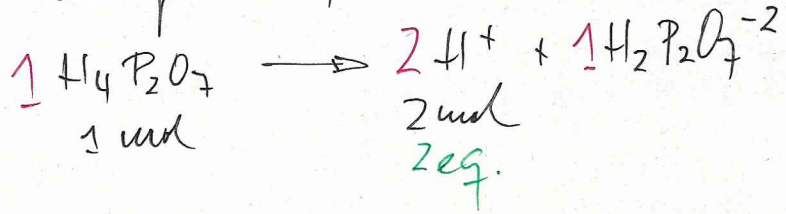 1 H₄P₂O₇ → 2H⁺ + 1H₂P₂O₇⁻²
1 mol 2 mol
2 eq.